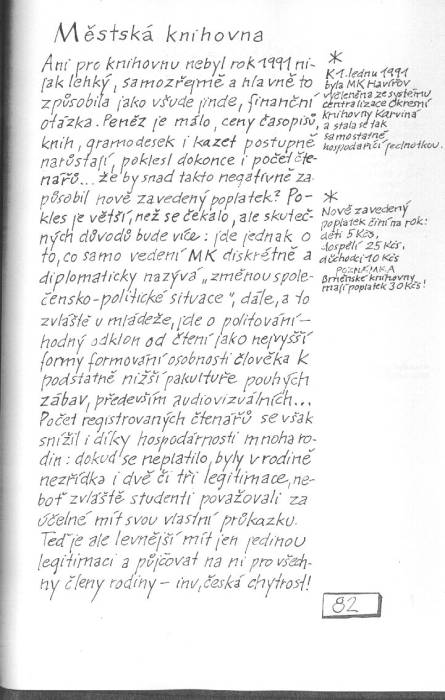 Městská knihovna
Ani pro knihovnu nebyl rok 1991 ni-
jak lehký, samozřejmě a hlavně to
způsobila jako všude jinde, finanční
otázka. Peněz je málo, ceny časopisů,
knih, gramodesek i kazet postupně
narůstají, poklesl dokonce i počet čte-
nářů... že by snad takto negativně za-
působil nově zavedený poplatek? Po-
kles je větší, než se čekalo, ale skuteč-
ných důvodů bude více: jde jednak o
to, co samo vedení MK diskrétně a
diplomaticky nazývá „změnou spole-
čensko-politické situace", dále, a to
zvláště u mládeže, jde o politování-
hodný odklon od čtení jako nejvyšší
formy formování osobnosti člověka k
podstatně nižší pakultuře pouhých
zábav, především audiovizuálních...
Počet registrovaných čtenářů se však
snížil i díky hospodárnosti mnoha ro-
din: dokud se neplatilo, byly v rodině
nezřídka i dvě či tři legitimace, ne-
boť zvláště studenti považovali za
účelné mít svou vlastní průkazku.
Teď je ale levnější mít jen jedinou
legitimaci a půjčovat na ni pro všech-
ny členy rodiny – inu, česká chytrost!
*
K 1. lednu 1991
byla MK Havířov
vyčleněna ze systému
centralizace Okresní
knihovny Karviná
a stala se tak
samostatně
hospodařící jednotkou.
*
Nově zavedený
poplatek činí na rok:
děti 5 Kčs,
dospělí 25 Kčs,
důchodci 10 Kčs
POZNÁMKA
Brněnské knihovny
mají poplatek 30 Kčs!
82